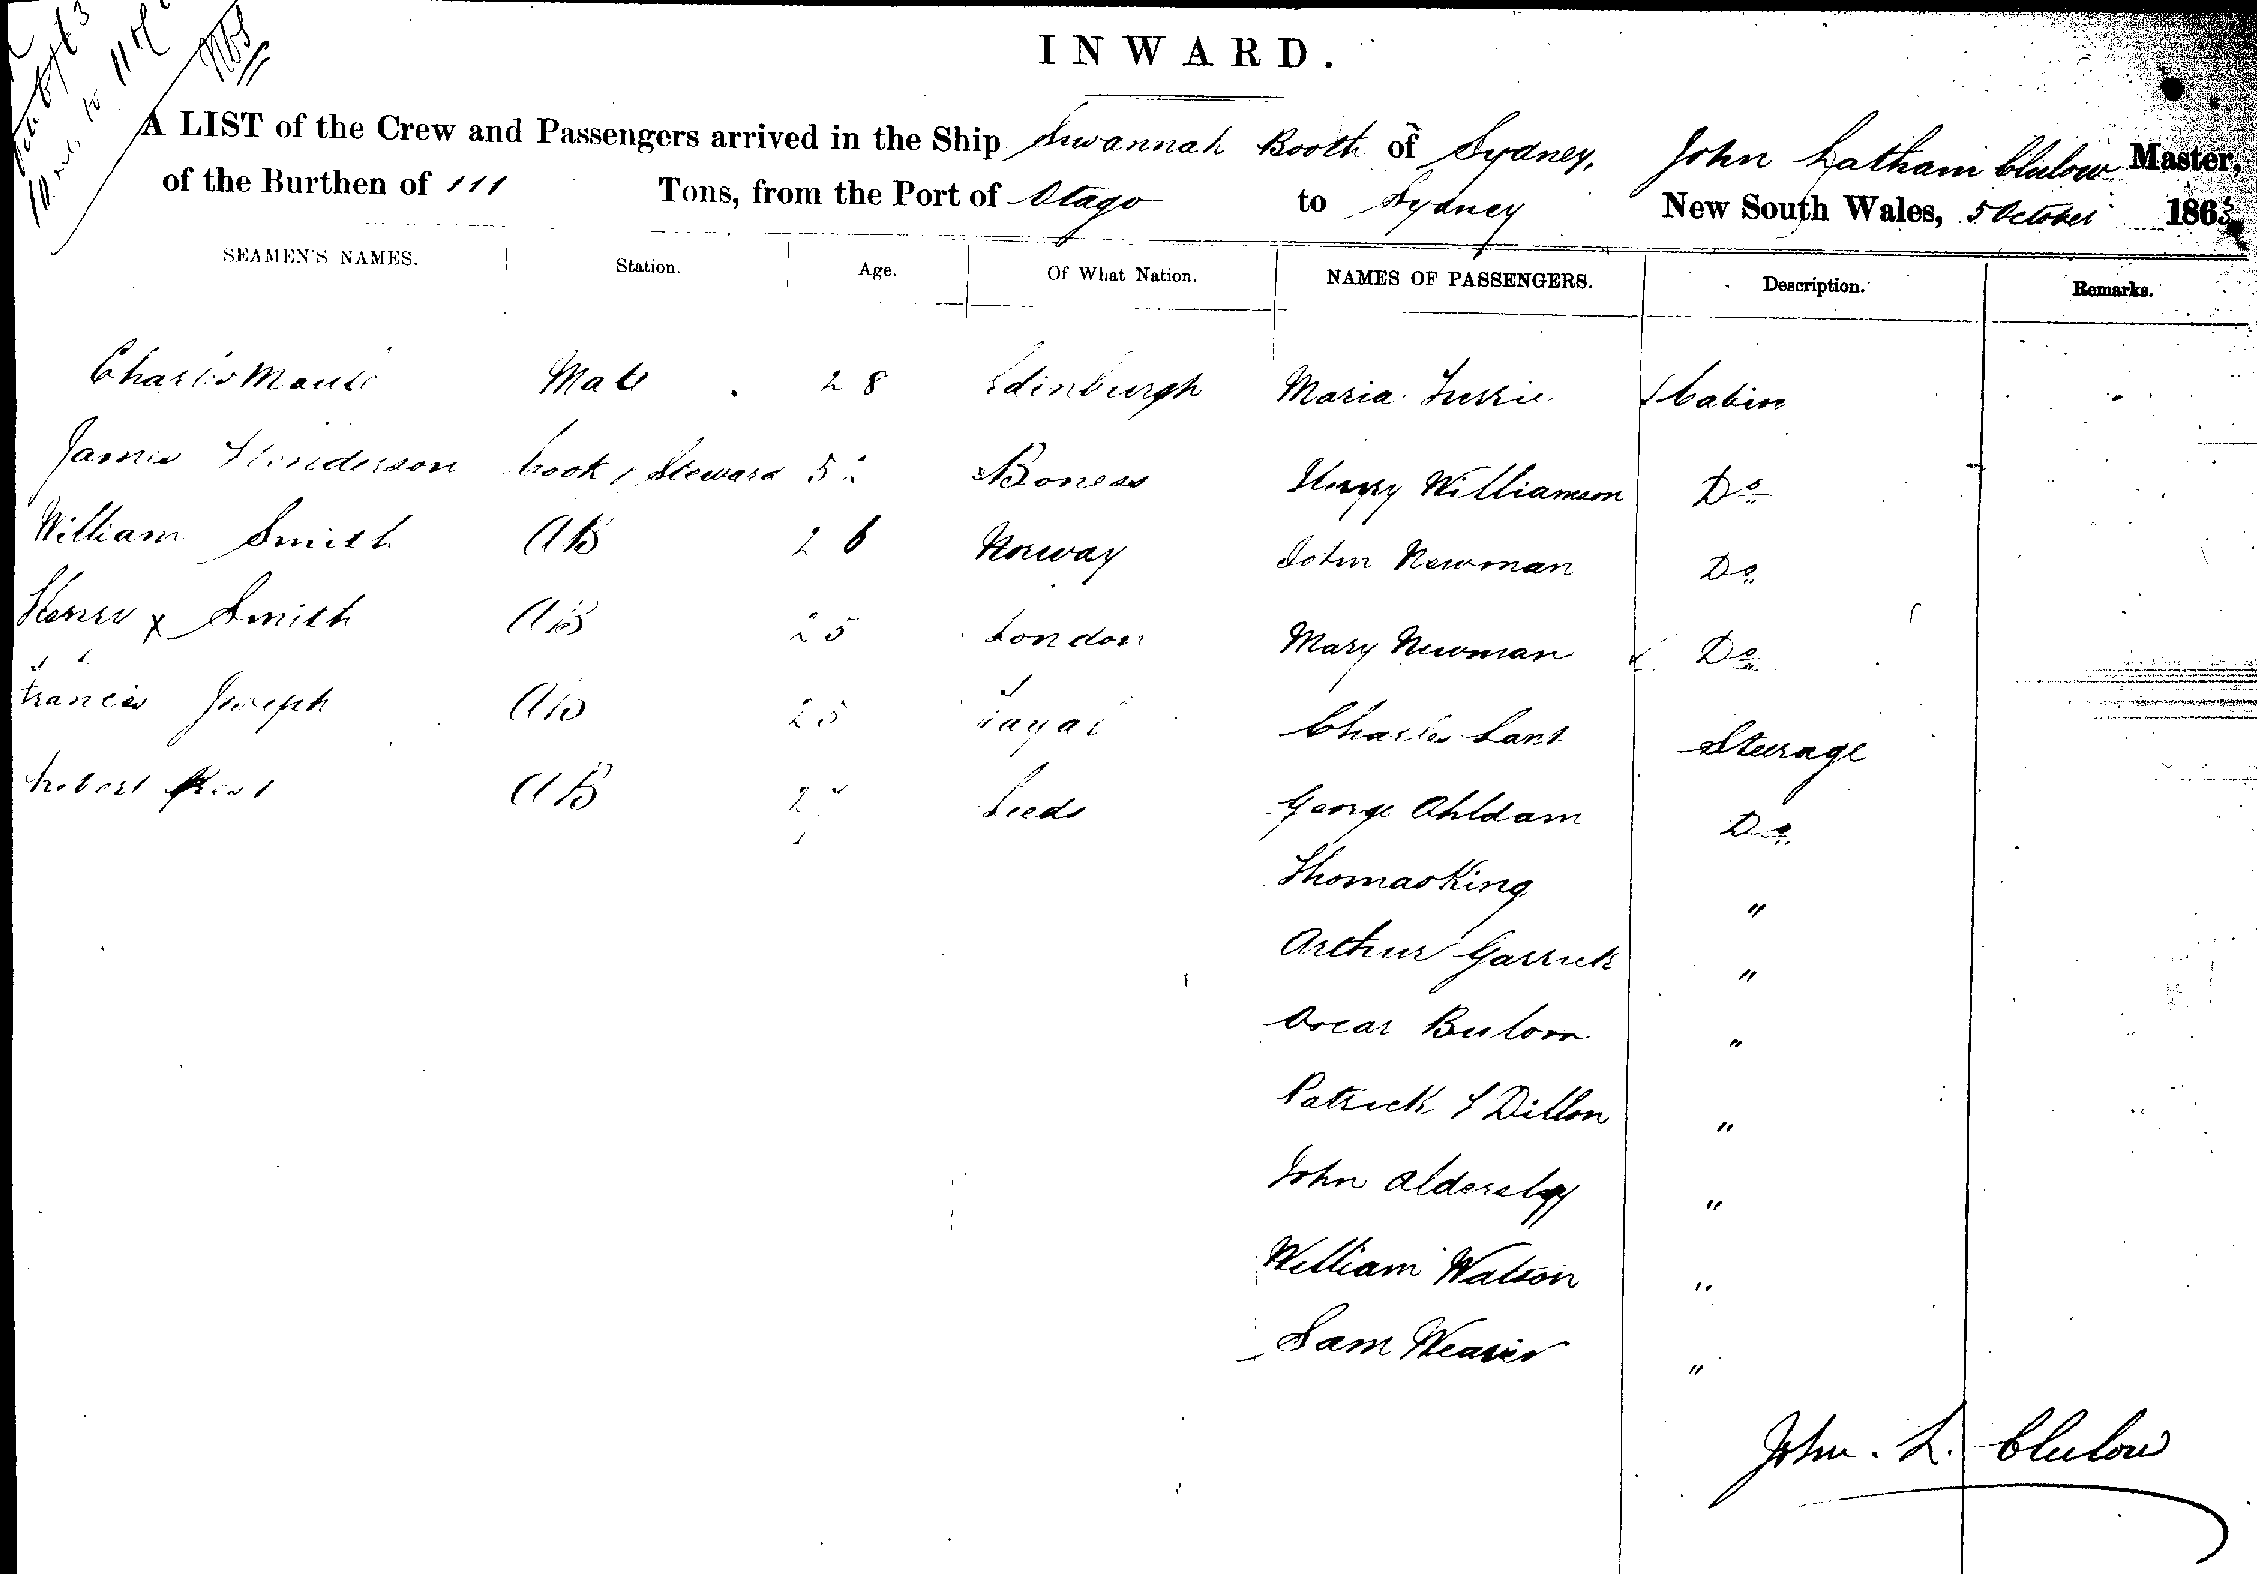 INWARD.
A LIST of the Crew and Passengers arrived in the Ship Suwannah Booth of Sydney, John Latham Clulow Master,
of the Burthen of 111 Tons, from the Port of Otago to Sydney New South Wales, 5 October 1863
SEAMEN'S NAMES. Station. Age. Of What Nation. NAMES OF PASSENGERS. Description. Remarks.
Charles Mate 28 Edinburgh Maria Cabin
James Henderson Cook, Steward Boness Henry Williamson Do
William Smith AB 26 Norway John Newman Do
Henry x Smith AB 25 London Mary Newman Do
Francis Joseph AB 25 Fayal Charles Steerage
Robert AB Leeds George Ahldam Do
Thomas King "
Arthur Garrick "
Oscar "
Patrick Dillon "
John "
William Watson "
Sam Weaver "
John. L. Clulow